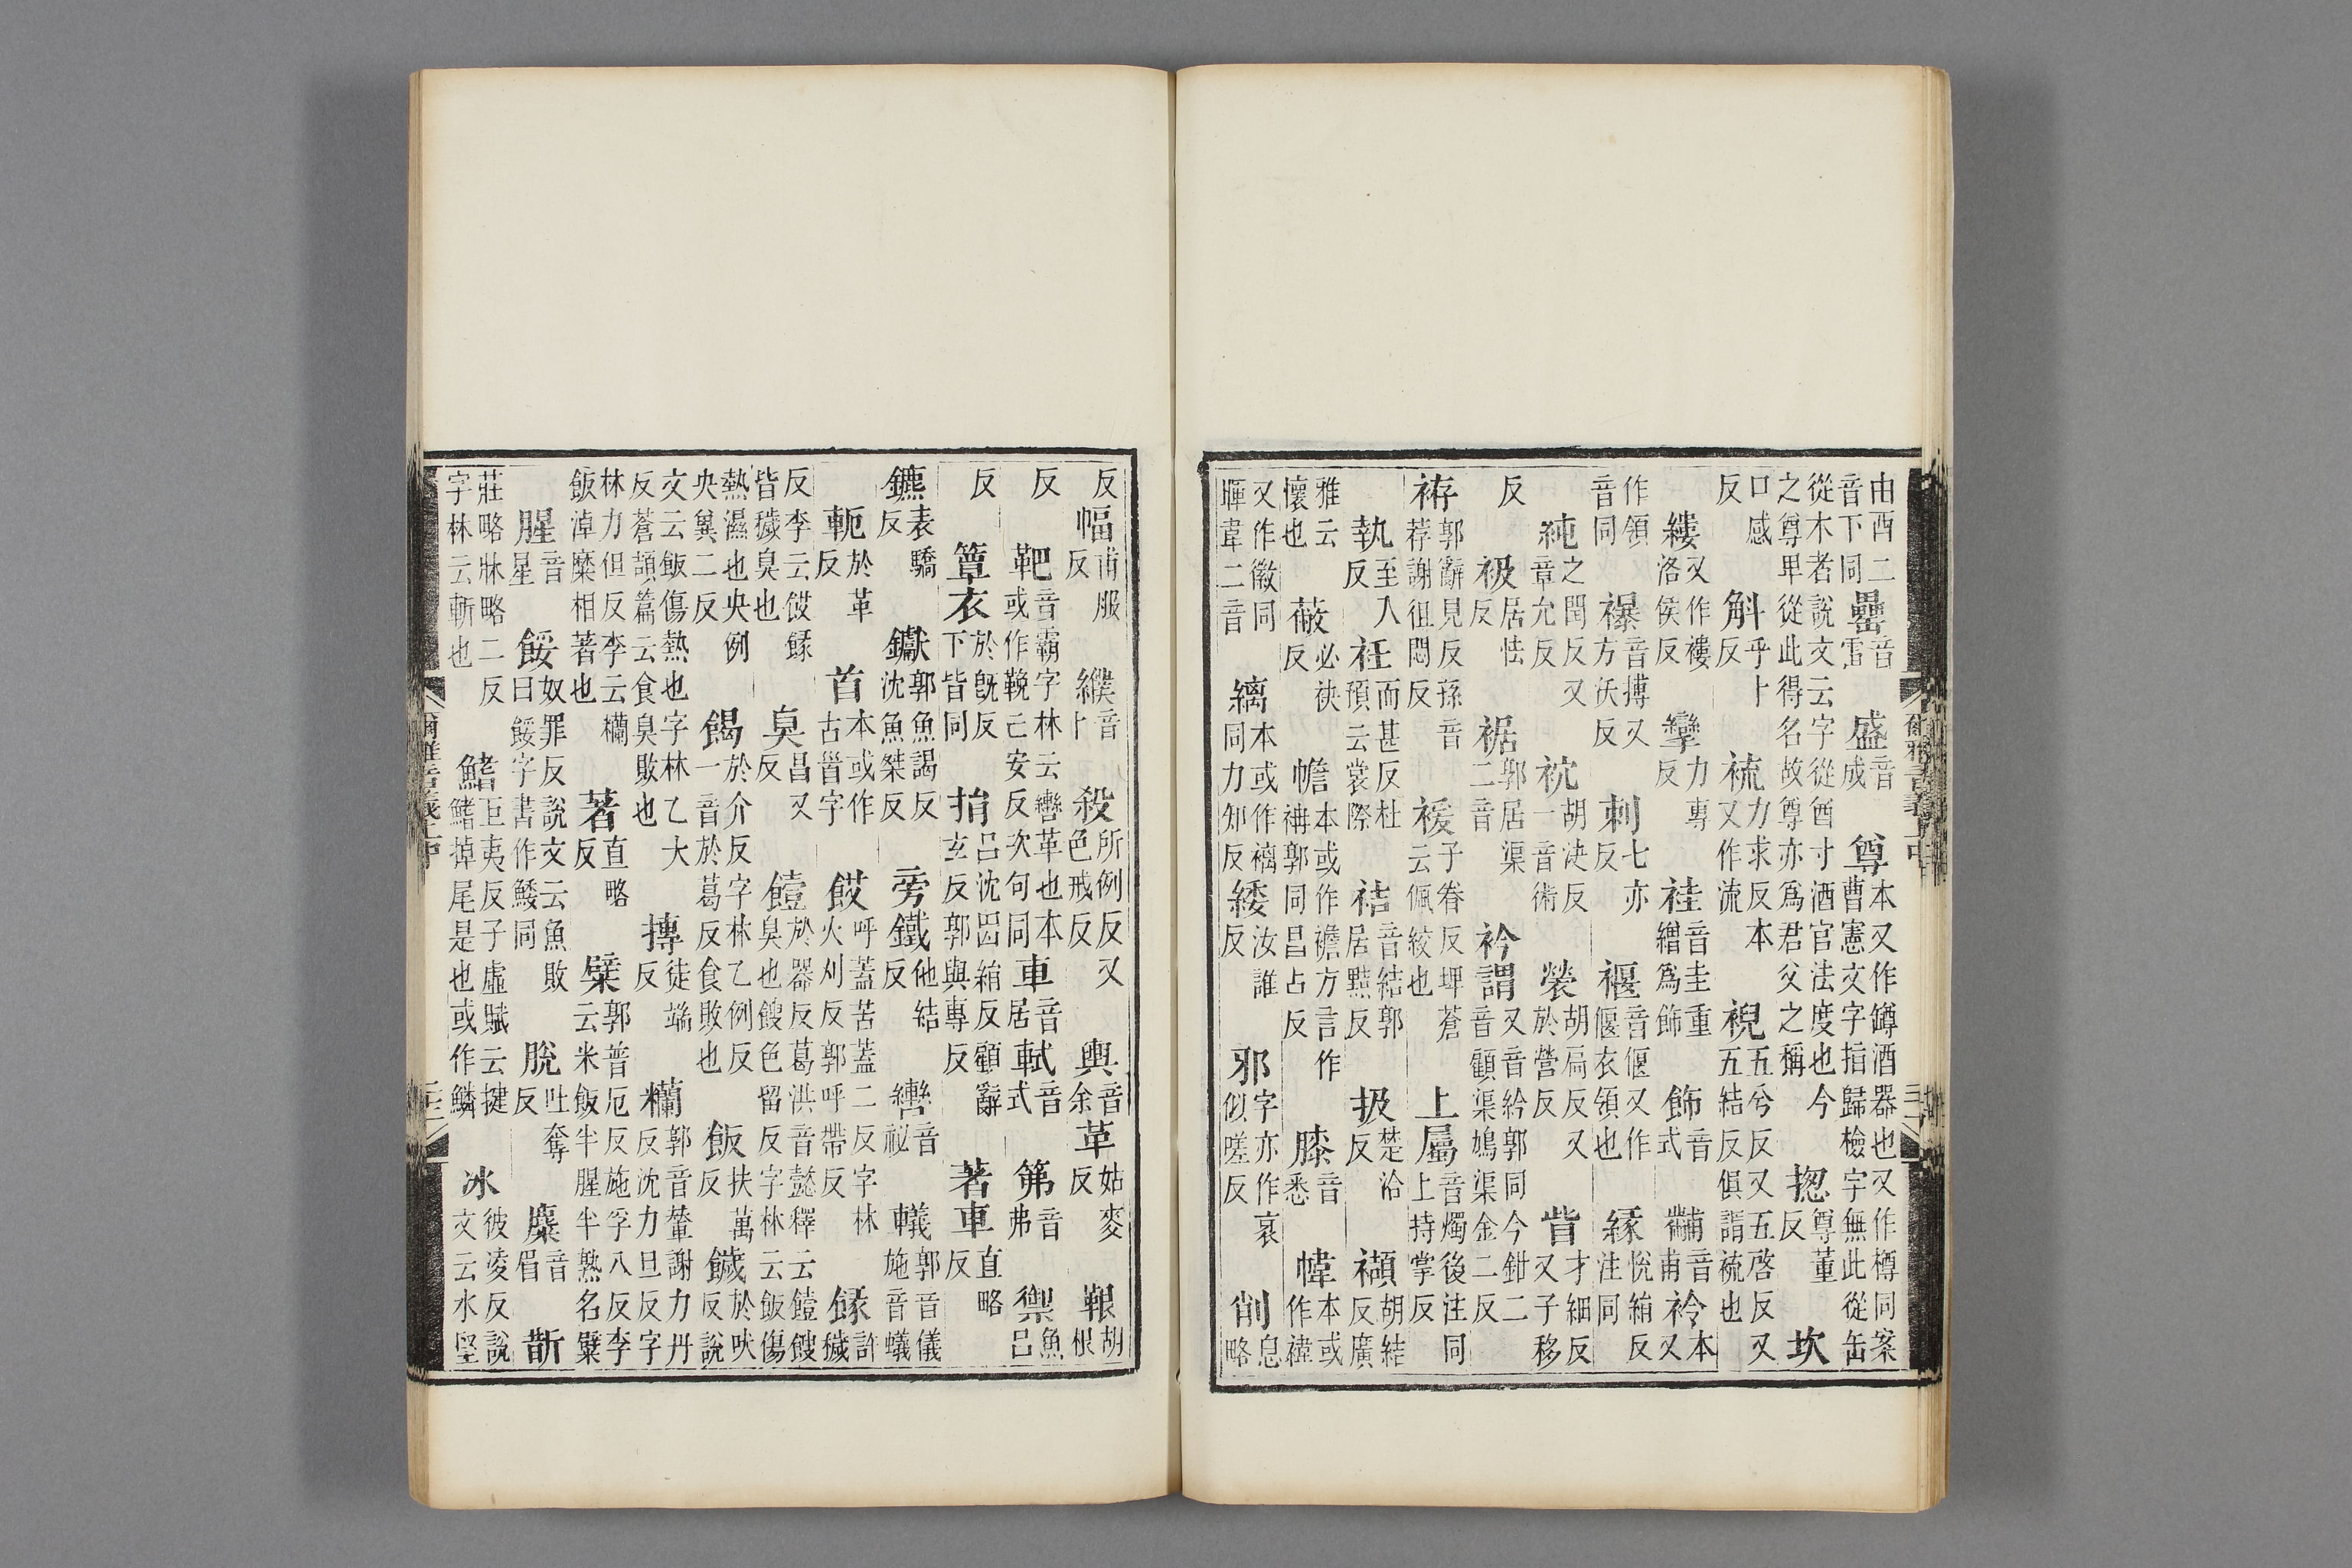 由酉二音下同罍音雷盛音成尊本又作罇酒器也又作樽同案曹憲文字指歸檢字無此從缶
從木者說文云字從酋寸酒官法度也今之尊卑從此得名故尊亦爲君父之稱揔尊董反坎
口感反斛乎卜反裗力求反本又作流䘽五兮反又五啓反又五結反俱謂裗也
縷又作褸洛侯反攣力專反袿音圭重繒爲飾飾音式黼音甫袊本又
作領音同襮音搏又方沃反刺七亦反褗音偃又作偃衣領也緣悅絹反注同
純之閏反又章允反袕胡决反一音術褮胡局反又於營反眥才細反又子移
反衱居怯反裾郭居渠二音衿謂又音紟郭同今鉗二音顧渠鳩渠金二反
袸郭辭見反孫音荐謝徂悶反褑子眷反埤蒼云佩絞也上屬音燭後注同上持掌反
執至入反衽而甚反杜預云裳際袺音結郭居黠反扱楚洽反襭胡結反廣
雅云懷也蔽必袂反幨本或作襜方言作袡郭同昌占反膝音悉幃本或作褘
又作徽同暉韋二音縭本或作褵同力知反緌汝誰反邪字亦作衺似嗟反削息略
反幅甫服反纀音卜殺所例反又色戒反輿音余革姑麥反鞎胡根
反靶音霸字林云轡革也本或作䩛己安反次句同車音居軾音式笰音弗禦魚呂
反簟衣於旣反下皆同捐呂沈囚絹反顧辭玄反郭與專反著車直略反
鑣表驕反钀郭魚謁反沈魚桀反旁鐵他結反轡音祕轙郭音儀施音蟻
軛於革反首本或作古𦣻字餀呼蓋苦蓋二反字林火刈反郭呼帶反餯許穢
反李云餀餯皆穢臭也臭昌又反饐於器反葛洪音懿釋云饐餿臭也餿色留反字林云飯傷
熱濕也央例央冀二反餲於介反字林乙例反一音於葛反食敗也飯扶萬反饖於吠反說
文云飯傷熱也字林乙大反蒼頡篇云食臭敗也摶徒端反糷郭音輦謝力丹反沈力旦反字
林力但反李云糷飯淖糜相著也著直略反糪郭普厄反施孚八反李云米飯半腥半熟名糪
腥音星餒奴罪反說文云魚敗曰餒字書作鮾同脫吐奪反麋音眉斮
莊略牀略二反字林云斬也鰭巨夷反子虛賦云揵鰭掉尾是也或作鱗冰彼凌反說文云水堅
爾雅音義上中